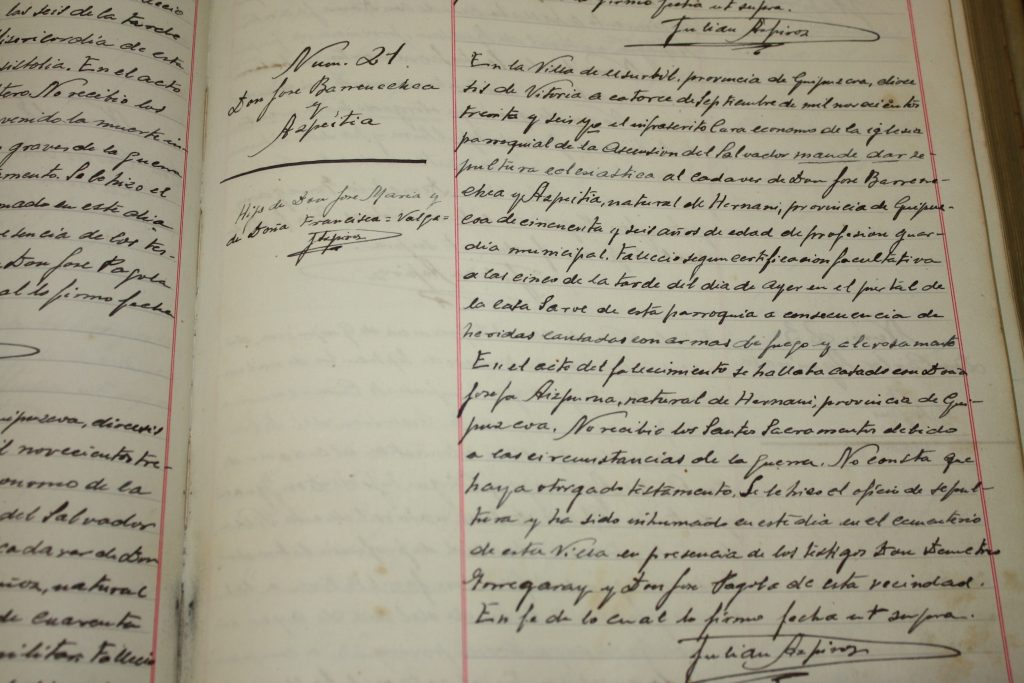 las seis de la tarde
Misericordia de esta
sistolia. En el acto
tero. No recibió los
venido la muerte
graves de la guerra
amento. Se le hizo el
mado en este dia
esencia de los tes-
Don Jose Pagola
al lo firmo fecha
Guipuzcoa, diocesis
l novecientos tre-
onomo de la
del Salvador
cadaver de Don
natural
de cuarenta
militar. Fallecio
Num. 21.
Don Jose Barrenechea
y
Azpeitia
Hijo de Don Jose Maria y
de Doña Francisca = Valga =
JAzpiroz
firmo fecha ut supra.
Julian Azpiroz
En la Villa de Usurbil, provincia de Guipuzcoa, dioce
sis de Vitoria a catorce de Septiembre de mil novecientos
treinta y seis yo el infrascrito Cura economo de la iglesia
parroquial de la Ascension del Salvador mande dar se-
pultura eclesiastica al cadaver de Don Jose Barrene-
chea y Azpeitia, natural de Hernani, provincia de Guipuz-
coa de cincuenta y seis años de edad de profesion guar-
dia municipal. Fallecio segun certificacion facultativa
a las cinco de la tarde del dia de ayer en el portal de
la casa Saroe de esta parroquia a consecuencia de
heridas causadas con armas de fuego y
En el acto del fallecimiento se hallaba casado con Doña
Josefa Aizpurua, natural de Hernani, provincia de Gui-
puzcoa. No recibio los Santos Sacramentos debido
a las circunstancias de la guerra. No consta que
haya otorgado testamento. Se le hizo el oficio de sepul-
tura y ha sido inhumado en este dia en el cementerio
de esta Villa en presencia de los testigos Don Demetrio
Yrregaray y Don Jose Pagola de esta vecindad.
En fe de lo cual lo firmo fecha ut supra.
Julian Azpiroz